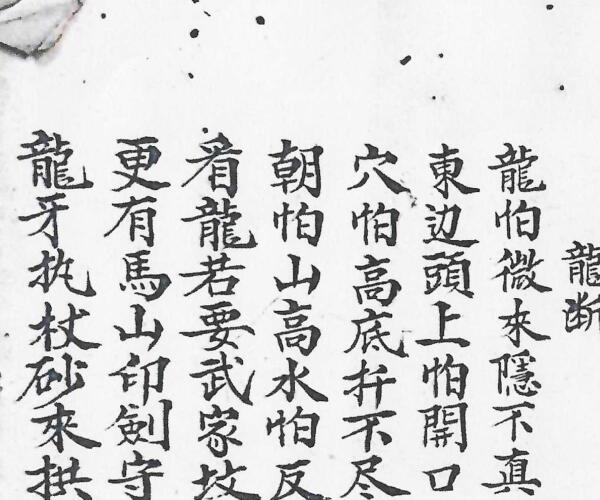 龍断
龍怕微來隱不真
東边頭上怕開口
穴怕高底扦不尽
朝怕山高水怕反
看龍若要武家坟
更有馬山印劍守
龍牙执杖砂來拱